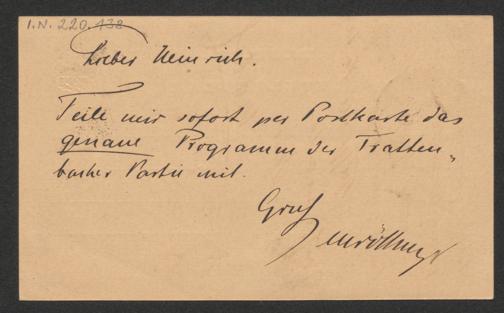 I.N. 220.138
Lieber Heinrich.
Teile mir sofort per Postkarte das
genaue Programm der Tratten„
bacher Partie mit.
Gruß